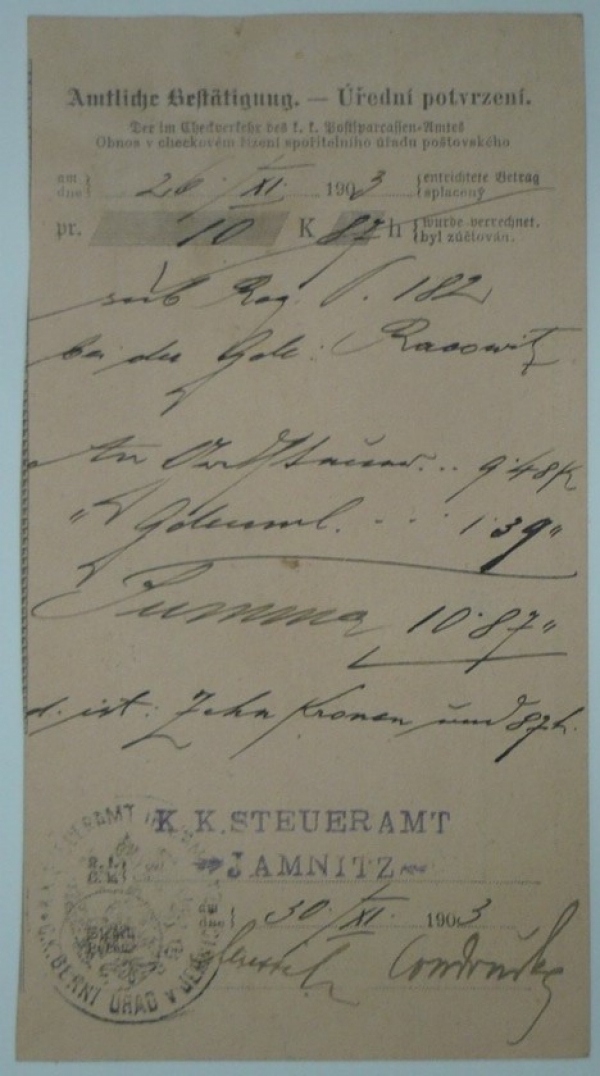 Amtliche Bestätigung. — Úřední potvrzení.
Der im Checkverkehr des k. k. Postsparcassen-Amtes
Obnos v checkovém řízení spořitelního úřadu poštovského
am
dne } 26/XI. 1903 { entrichtete Betrag
splacený
pr. 10 K 87 h { wurde verrechnet.
byl zúčtován.
sub Reg. 182
bei der Gde: Racowitz
An 9·48K
" 1·39"
Summa 10·87"
d. ist: Zehn Kronen und 87h.
K. K. STEUERAMT
JAMNITZ
am
dne } 30/XI. 1903
C.K. BERNÍ ÚŘAD V JEMNICI